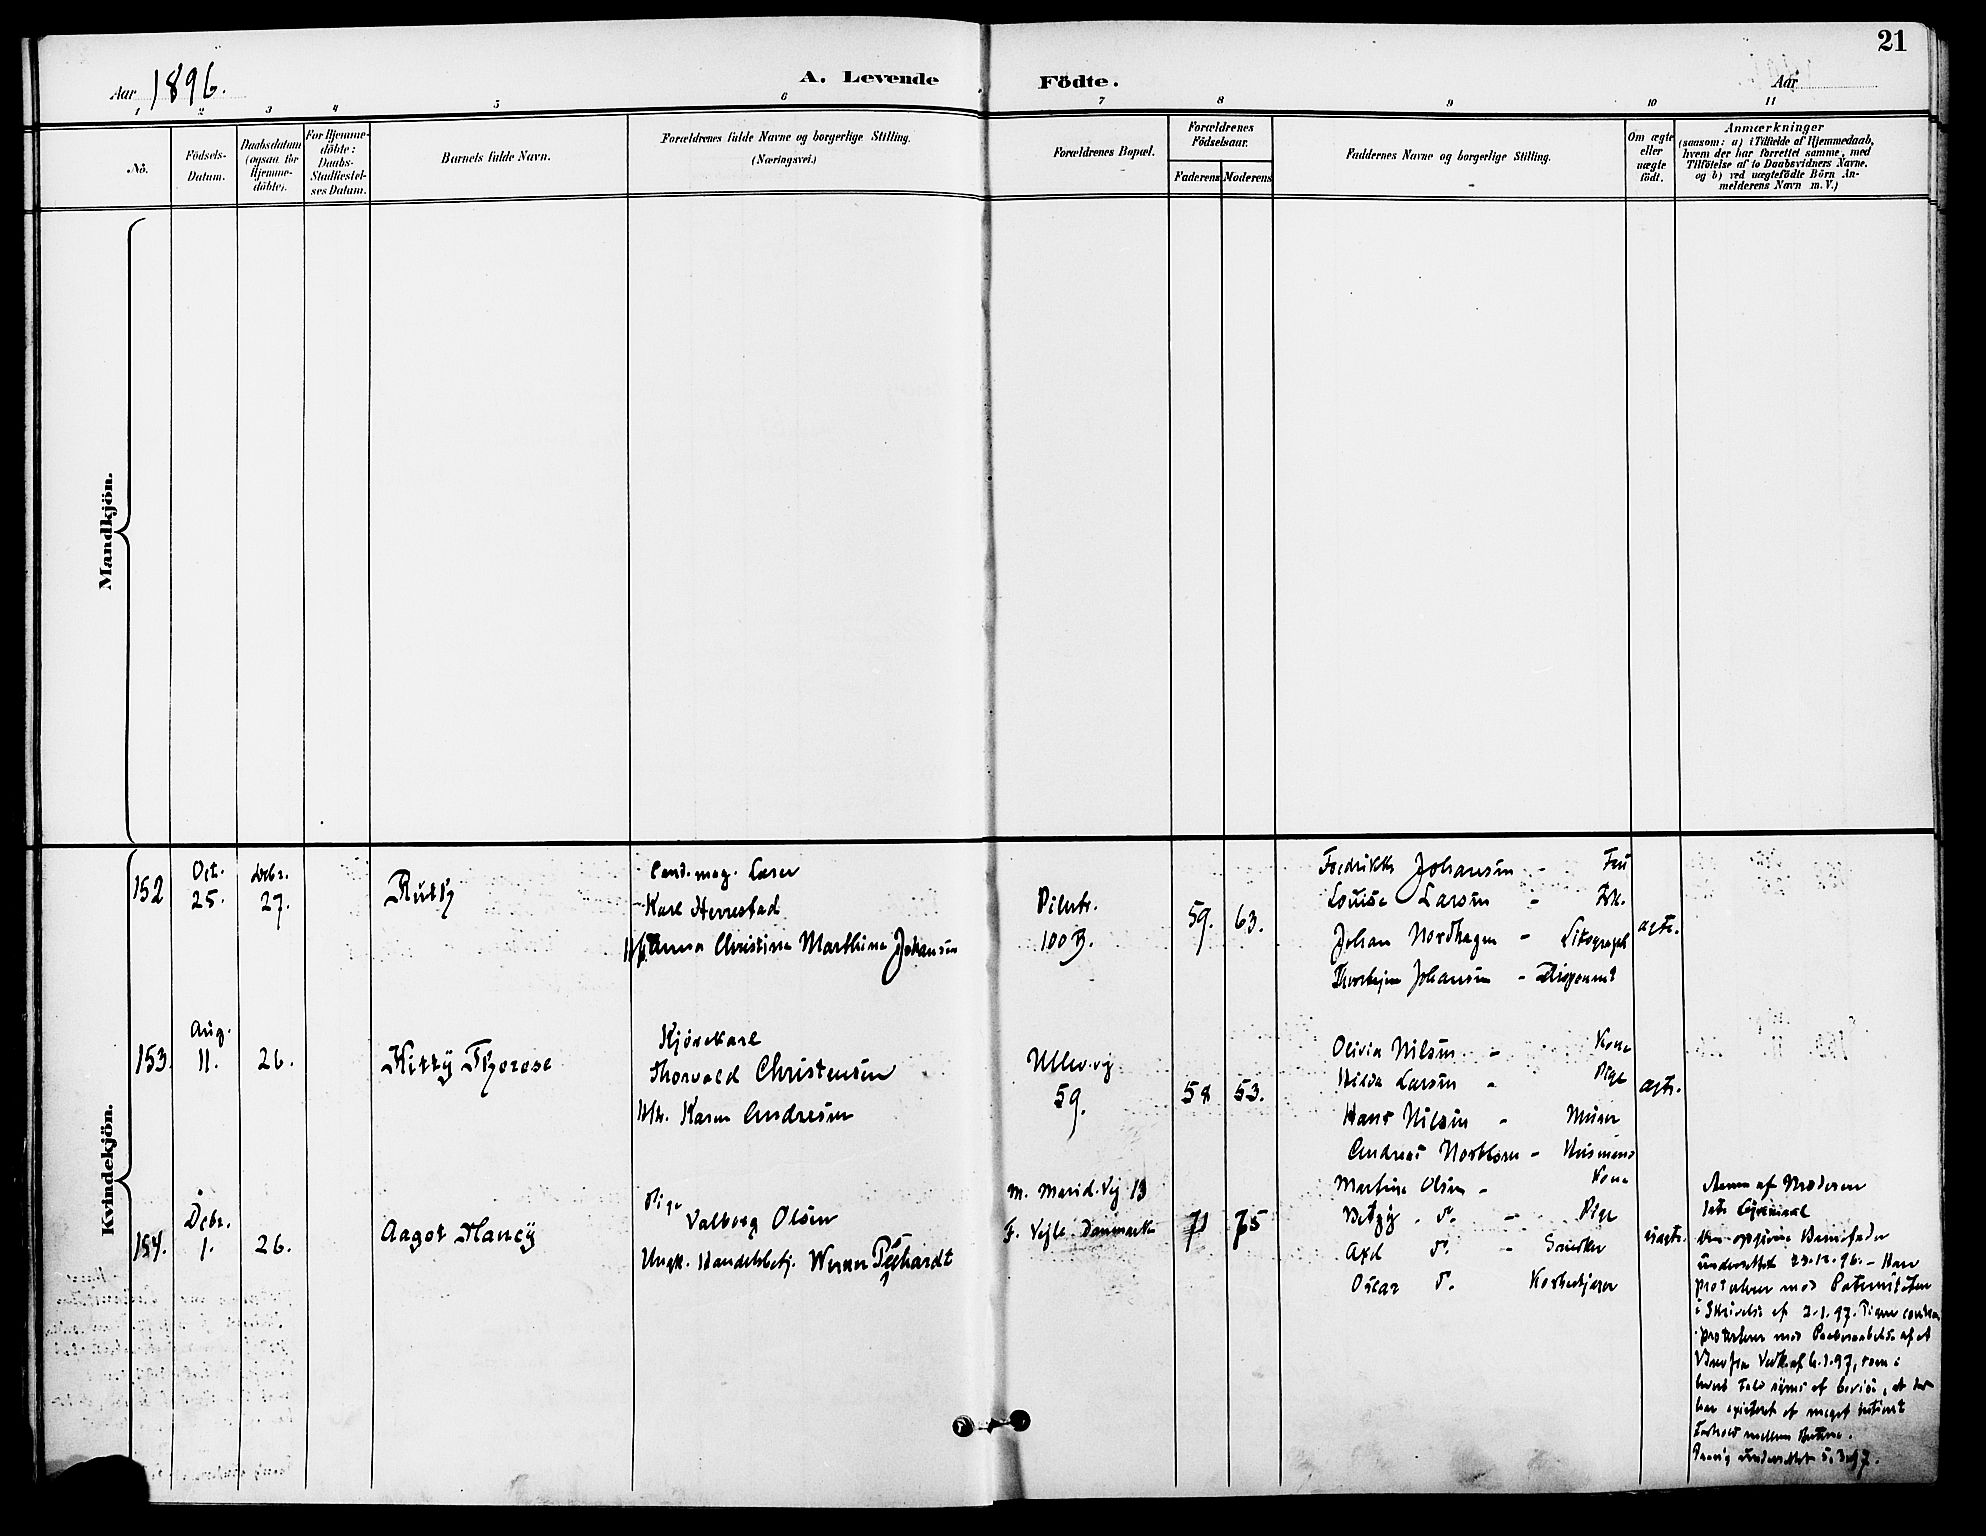 21
Aar 1896.
A. Levende Födte.
Aar
1 2 3 4 5 6 7 8 9 10 11
No.
Födsels-
Datum.
Daabsdatum
(ogsaa for
Hjemme-
döbte).
For Hjemme-
döbte:
Daabs-
Stadfæstel-
ses Datum.
Barnets fulde Navn.
Forældrenes fulde Navne og borgerlige Stilling.
(Næringsvei.)
Forældrenes Bopæl.
Forældrenes
Födselsaar.
Faderens
Moderens
Faddernes Navne og borgerlige Stilling.
Om ægte
eller
uægte
født.
Anmærkninger
(saasom: a) i Tilfælde af Hjemmedaab,
hvem der har forrettet samme, med
Tilföielse af to Daabsvidners Navne.
og b) ved uægtefödte Börn An-
melderens Navn m. V.)
Mandkjön.
Kvindekjön.
152
Oct.
25.
Debr.
27.
Ruth
Cand. mag. Lærer
Karl Herrestad
Anna Christine Marthine Johansen
Pilestr.
100 B.
59.
63.
Fredrikke Johansen - Fru
Louise Larsen - Frk.
Johan Nordhagen - Litograph
Thorbjørn Johansen - Disponent
ægte.
153.
Aug.
11.
26.
Kitty Therese
Kjørekarl
Thorvald Christensen
Karen Andresen
Ullev.vg
59.
58
53.
Olivia Nilsen - Kone
Hilda Larsen - Pige
Hans Nilsen - Murer
Andreas - Husmand
ægte.
154.
Debr.
1.
26.
Aagot Nancy
Pige
Valborg Olsen
Ungk. Handelsbetj. Werner
M. Marid.vej 13
F. Vejle Danmark
71
75
Martine Olsen - Kone
Betzy do. - Pige
Axel do. - Snedker
Oscar do.
uægte.
Anm. af Moderen
Den opgivne Barnefader
underrettet 29.12.96. - Han
protesterer mod Paterniteten
i Skrivelse af 2.1.97. Pigen
protesterer mod
af 6.1.97, som i
hvert Fald synes at bevise, at der
har existeret et meget intimt
Forhold mellem
underrettet 5.3.97.